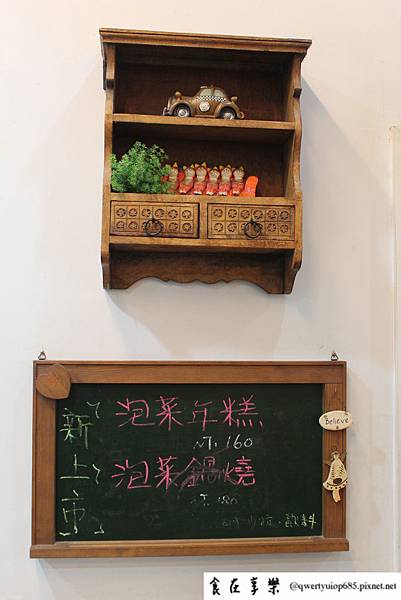 新上市
泡菜年糕
NT.160
泡菜鍋燒
NT.180
飲料
Believe
食在享樂
@qwertyuiop685.pixnet.net